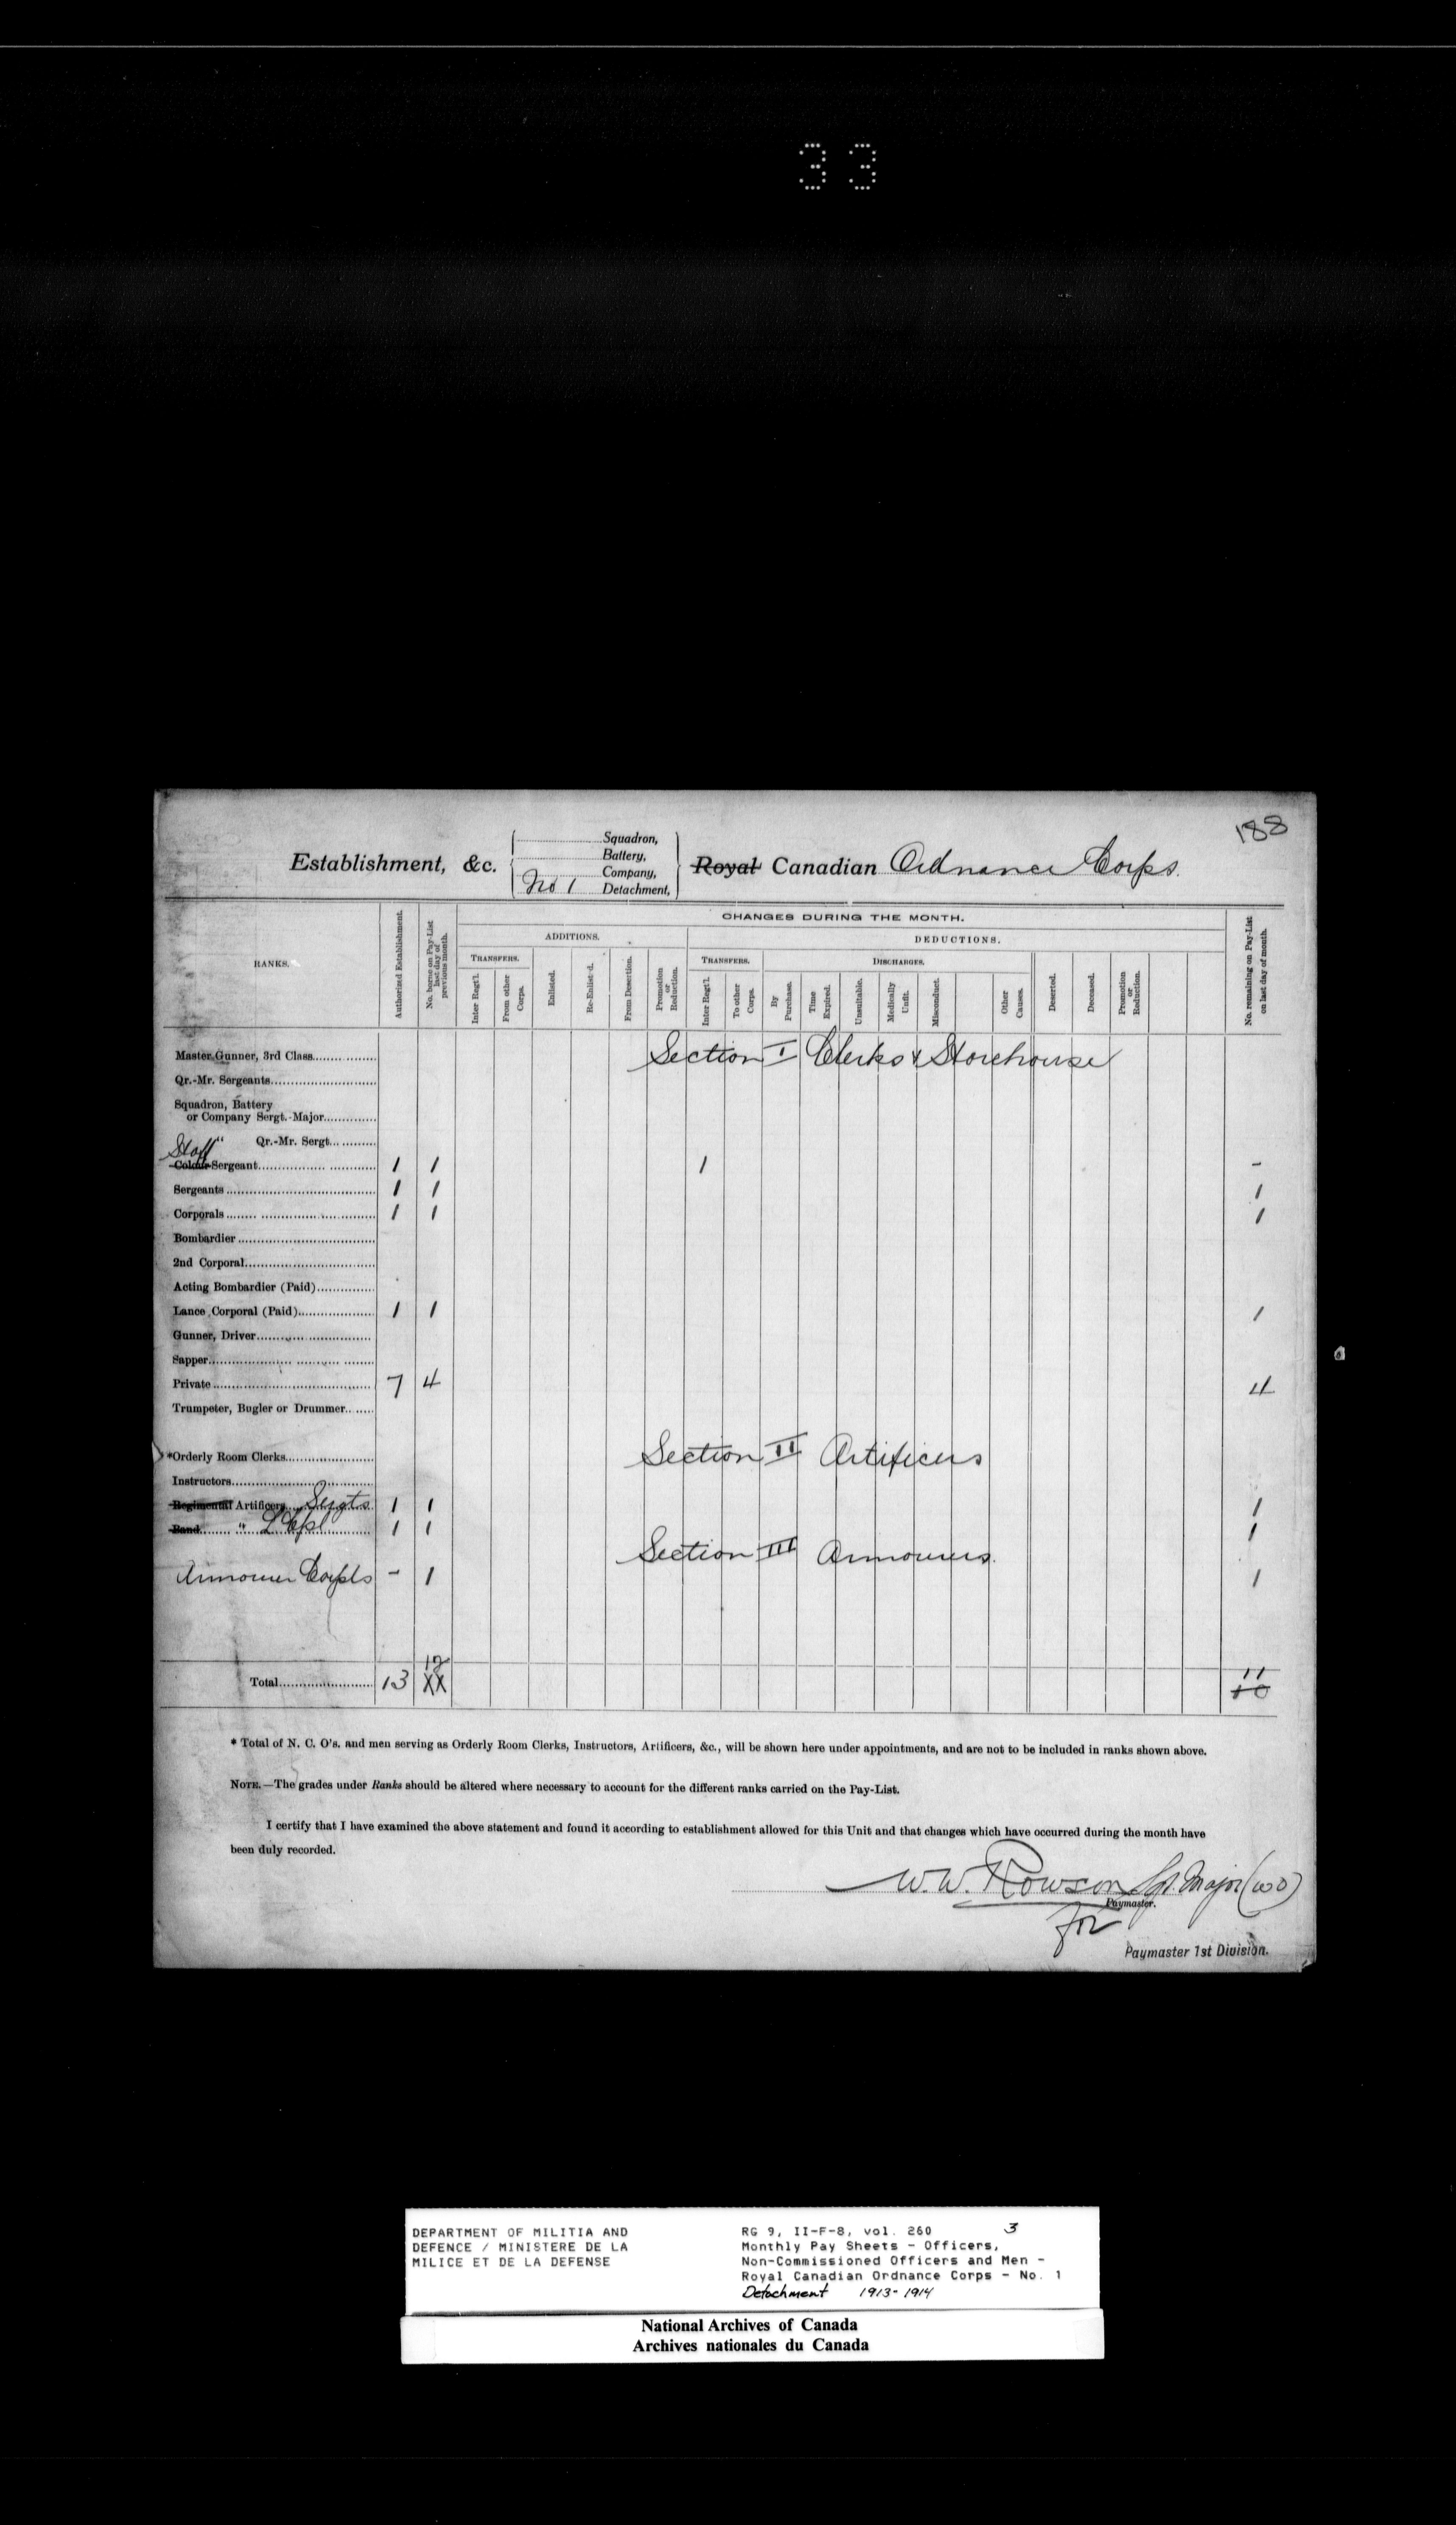 33
188
Establishment, &c.
Squadron,
Battery,
Company,
No 1 Detachment,
Royal Canadian Ordnance Corps.
RANKS.
Authorized Establishment.
No. borne on Pay-List last day of previous month.
CHANGES DURING THE MONTH.
ADDITIONS.
DEDUCTIONS.
TRANSFERS.
TRANSFERS.
DISCHARGES.
Inter Regt'l.
From other Corps.
Enlisted.
Re-Enlist-d.
From Desertion.
Promotion or Reduction.
Inter Regt'l.
To other Corps.
By Purchase.
Time Expired.
Unsuitable.
Medically Unfit.
Misconduct.
Other Causes.
Deserted.
Deceased.
Promotion or Reduction.
No. remaining on Pay-List on last day of month.
Master Gunner, 3rd Class
Section I Clerks & Storehouse
Qr.-Mr. Sergeants
Squadron, Battery
or Company Sergt.-Major
" Qr.-Mr. Sergt.
Staff
Colour-Sergeant 1 1 1 -
Sergeants 1 1 1
Corporals 1 1 1
Bombardier
2nd Corporal
Acting Bombardier (Paid)
Lance Corporal (Paid) 1 1 1
Gunner, Driver
Sapper
Private 7 4 4
Trumpeter, Bugler or Drummer
Section II Artificers
*Orderly Room Clerks
Instructors
Regimental Artificers Sergts 1 1 1
Band " L Cpl 1 1 1
Section III Armourers.
Armourer Corpls - 1 1
12 11
Total 13 XX 10
* Total of N. C. O's. and men serving as Orderly Room Clerks, Instructors, Artificers, &c., will be shown here under appointments, and are not to be included in ranks shown above.
NOTE.—The grades under Ranks should be altered where necessary to account for the different ranks carried on the Pay-List.
I certify that I have examined the above statement and found it according to establishment allowed for this Unit and that changes which have occurred during the month have
been duly recorded.
W.W. Rowson Sgt. Major (WO)
Paymaster.
for
Paymaster 1st Division.
DEPARTMENT OF MILITIA AND
DEFENCE / MINISTERE DE LA
MILICE ET DE LA DEFENSE
RG 9, II-F-8, vol. 260 3
Monthly Pay Sheets - Officers,
Non-Commissioned Officers and Men -
Royal Canadian Ordnance Corps - No. 1
Detachment 1913-1914
National Archives of Canada
Archives nationales du Canada